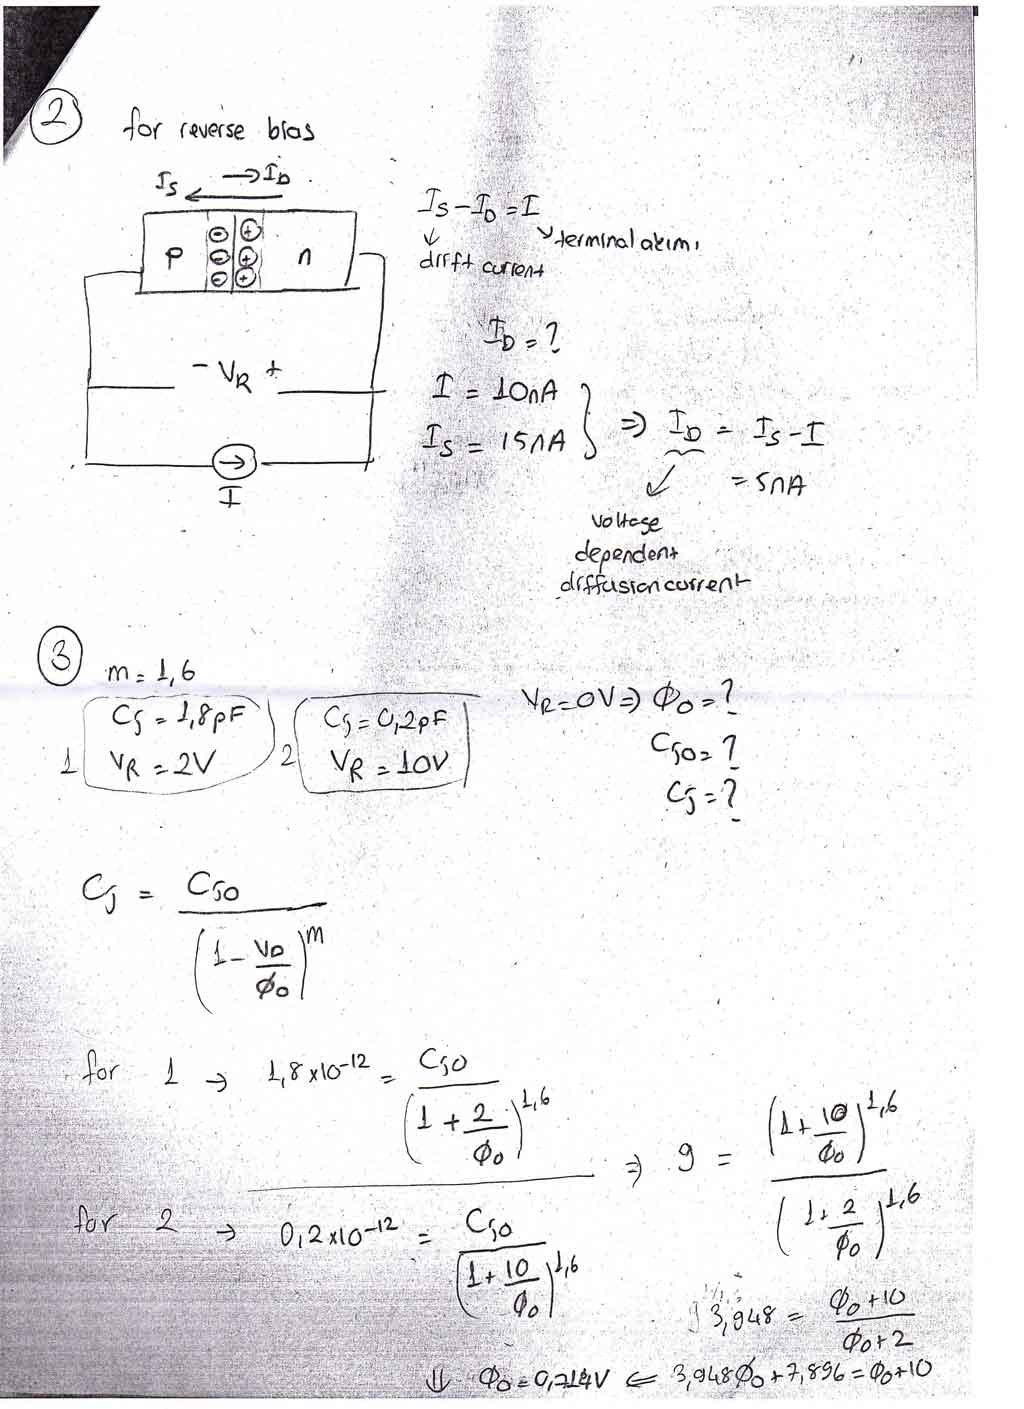 2
for reverse bias
I_S ← → I_D
p ⊖ ⊕ n
⊖ ⊕
⊖ ⊕
- V_R +
I
I_S - I_D = I
drift current
terminal akımı
I_D = ?
I = 10nA
I_S = 15nA
⇒ I_D = I_S - I
= 5nA
voltage
dependent
diffusion current
3
m = 1,6
1 Cj = 1,8pF
V_R = 2V
2 Cj = 0,2pF
V_R = 10V
V_R = 0V ⇒ ϕ_0 = ?
C_j0 = ?
Cj = ?
Cj = C_j0 / (1 - V_D/ϕ_0)^m
for 1 → 1,8x10^-12 = C_j0 / (1 + 2/ϕ_0)^1,6
for 2 → 0,2x10^-12 = C_j0 / (1 + 10/ϕ_0)^1,6
⇒ 9 = (1 + 10/ϕ_0)^1,6 / (1 + 2/ϕ_0)^1,6
3,948 = ϕ_0 + 10 / ϕ_0 + 2
⇓ ϕ_0 = 0,714V ⇐ 3,948ϕ_0 + 7,896 = ϕ_0 + 10